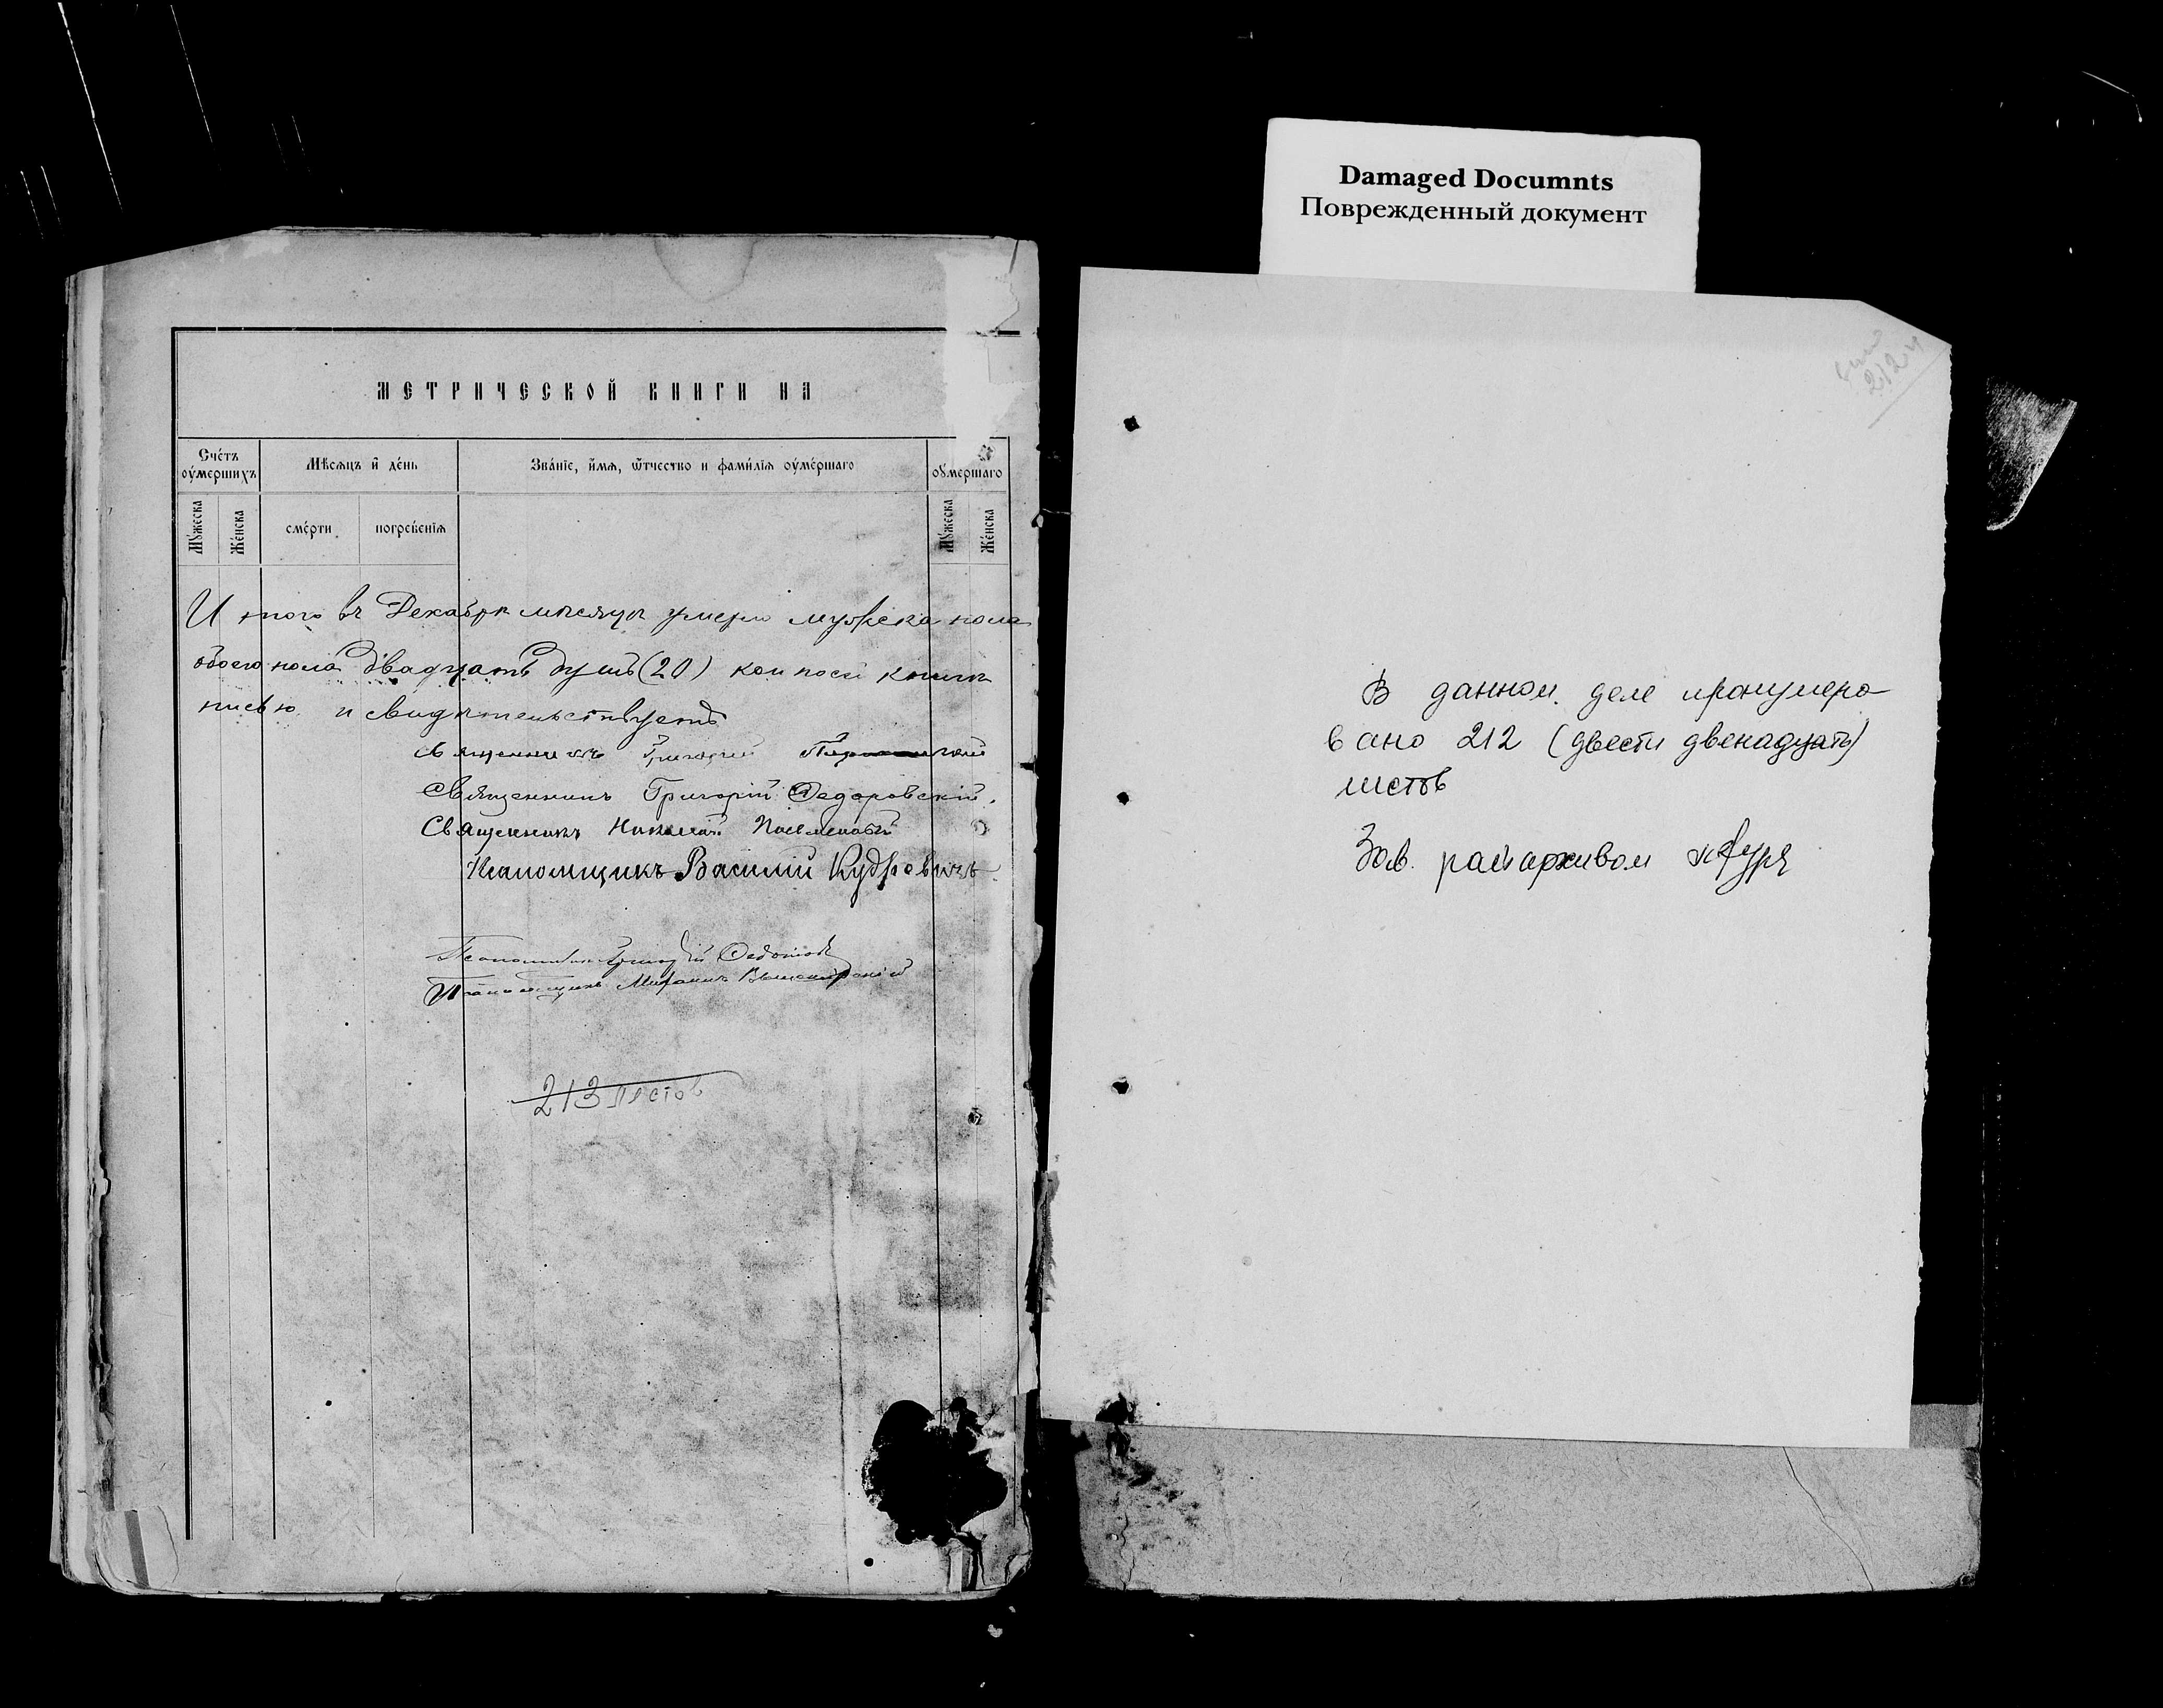 Damaged Documnts
Поврежденный документ
МЕТРИЧЕСКОЙ КНИГИ НА
Сче́тъ оу҆мершихъ
Мѣсѧцъ и҆ де́нь
Зва́нїе, и҆́мѧ, ѿтчество и фами́лїѧ оу҆ме́ршаго
оу҆мершаго
Мꙋжеска
Же́нска
сме́рти
погребе́нїѧ
Мꙋжеска
Же́нска
И того въ Декабрѣ мѣсяцѣ умерло мужеска пола
обоего пола двадцать душъ (20) кои по сей книги
писью и свидѣтельствуетъ
Священникъ Григорій
Священникъ Григорій Федоровскій.
Священникъ Николай
Псаломщикъ Василій Кудревичъ
Псаломщикъ Григорій Федотовъ
Псаломщикъ
213 листов
212
В данном деле пронумеро
вано 212 (двести двенадцать)
листов
Зав. райархивом